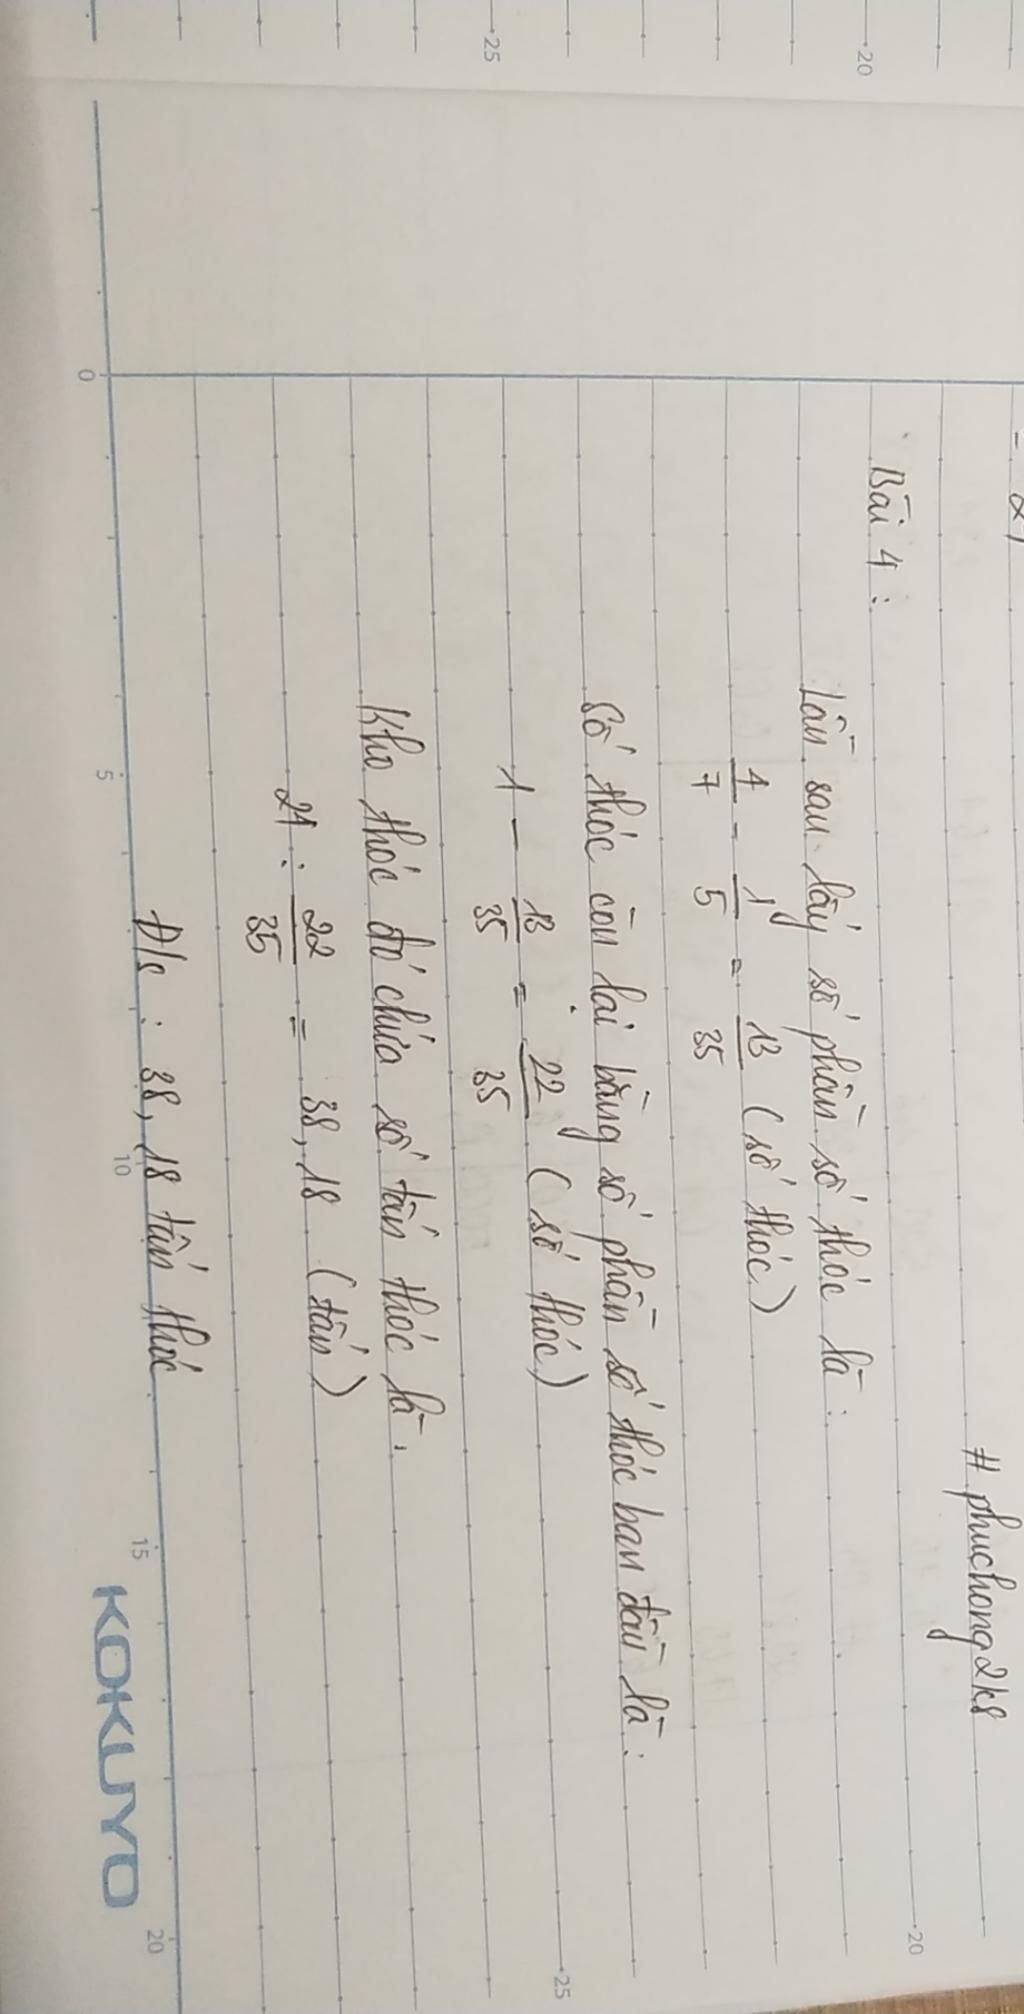 # phuchong2k8
Bài 4 :
Lần sau lấy số phần số thóc là :
4/7 - 1/5 = 13/35 (số thóc)
Số thóc còn lại bằng số phần số thóc ban đầu là :
1 - 13/35 = 22/35 (số thóc)
Kho thóc đó chứa số tấn thóc là :
24 : 22/35 = 38,18 (tấn)
Đ/s : 38,18 tấn thóc
KOKUYO
0
5
10
15
20
20
25
20
25